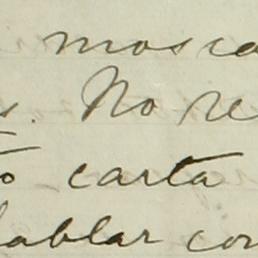 mosca
s. No re
to carta
hablar con